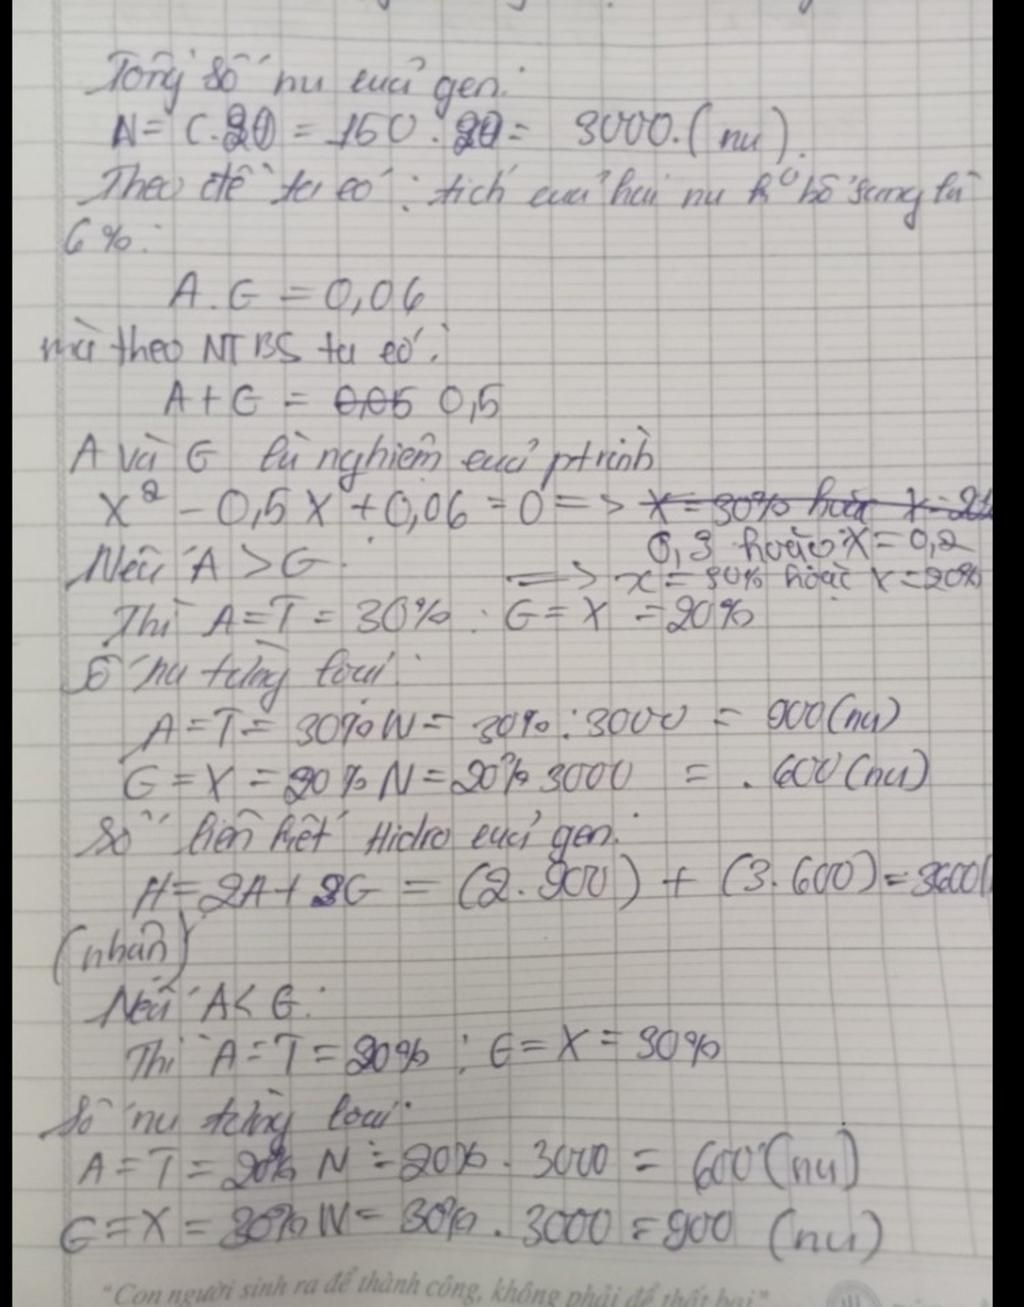 Tổng số nu của gen:
N = C.20 = 150 . 20 = 3000.(nu).
Theo đề ta có : tích của hai nu k0 bổ sung là
6%:
A.G = 0,06
mà theo NTBS ta có:
A+G = 0,05 0,5
A và G là nghiệm của ptrình
X² - 0,5X + 0,06 = 0 => x = 30% hoặc x = 20%
0,3 hoặc X = 0,2
Nếu A > G:
=> x = 30% hoặc x = 20%
Thì A = T = 30% : G = X = 20%
Số nu từng loại:
A = T = 30% N = 30% : 3000 = 900 (nu)
G = X = 20% N = 20% 3000 = . 600 (nu)
Số liên kết Hidro của gen:
H = 2A + 3G = (2.900) + (3.600) = 3600 (
(nhận)
Nếu A < G:
Thì A = T = 20% : G = X = 30%
Số nu từng loại:
A = T = 20% N = 20% . 3000 = 600 (nu)
G = X = 30% N = 30% . 3000 = 900 (nu)
"Con người sinh ra để thành công, không phải để thất bại"